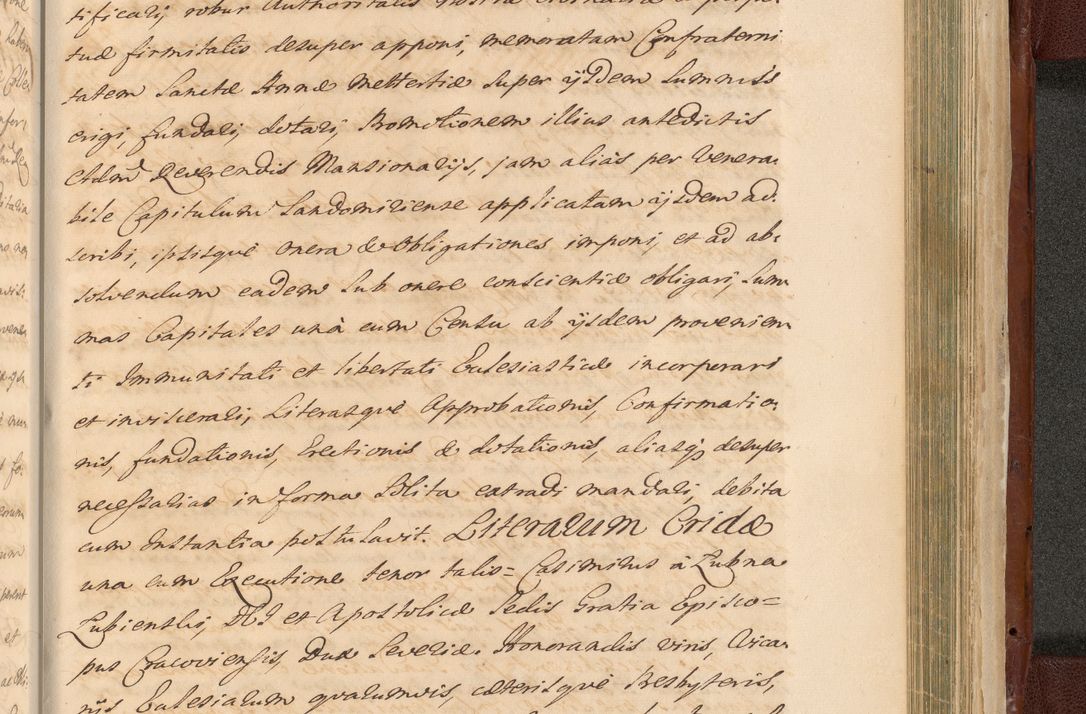 tificari, robur Authoritatis
tuæ firmitatis desuper apponi, memoratam Confraterni
tatem Sanctæ Annæ Mettertiæ super ijsdem Summis
erigi, fundari, dotari, Promotionem illius antedictis
Adm Reverendis Mansionarijs, jam alias per Venera
bile Capitulum Sandomiriense applicatam ijsdem ad
scribi, ipsisque onera & obligationes imponi, et ad ab:
solvendum eadem sub onere conscientiæ obligari, Sum
mas Capitales unà cum Censu ab ijsdem provenien
ti Immunitati et libertati Eclesiasticæ incorporari
et inviscerari, Literasque Approbationis, Confirmatio
nis, fundationis, Erectionis & dotationis, aliasq desuper
necessarias in forma solita extradi mandari, debita
cum Instantia postulavit. Literarum Cridæ
una cum Executione tenor talis= Casimirus à Lubna
Lubienski, DEI et Apostolicæ Sedis Gratia Episco=
pus Cracoviensis, Dux Severiæ. Honorandis viris, Vica
rijs Eclesiarum quarumvis, cæterisque Presbyteris,